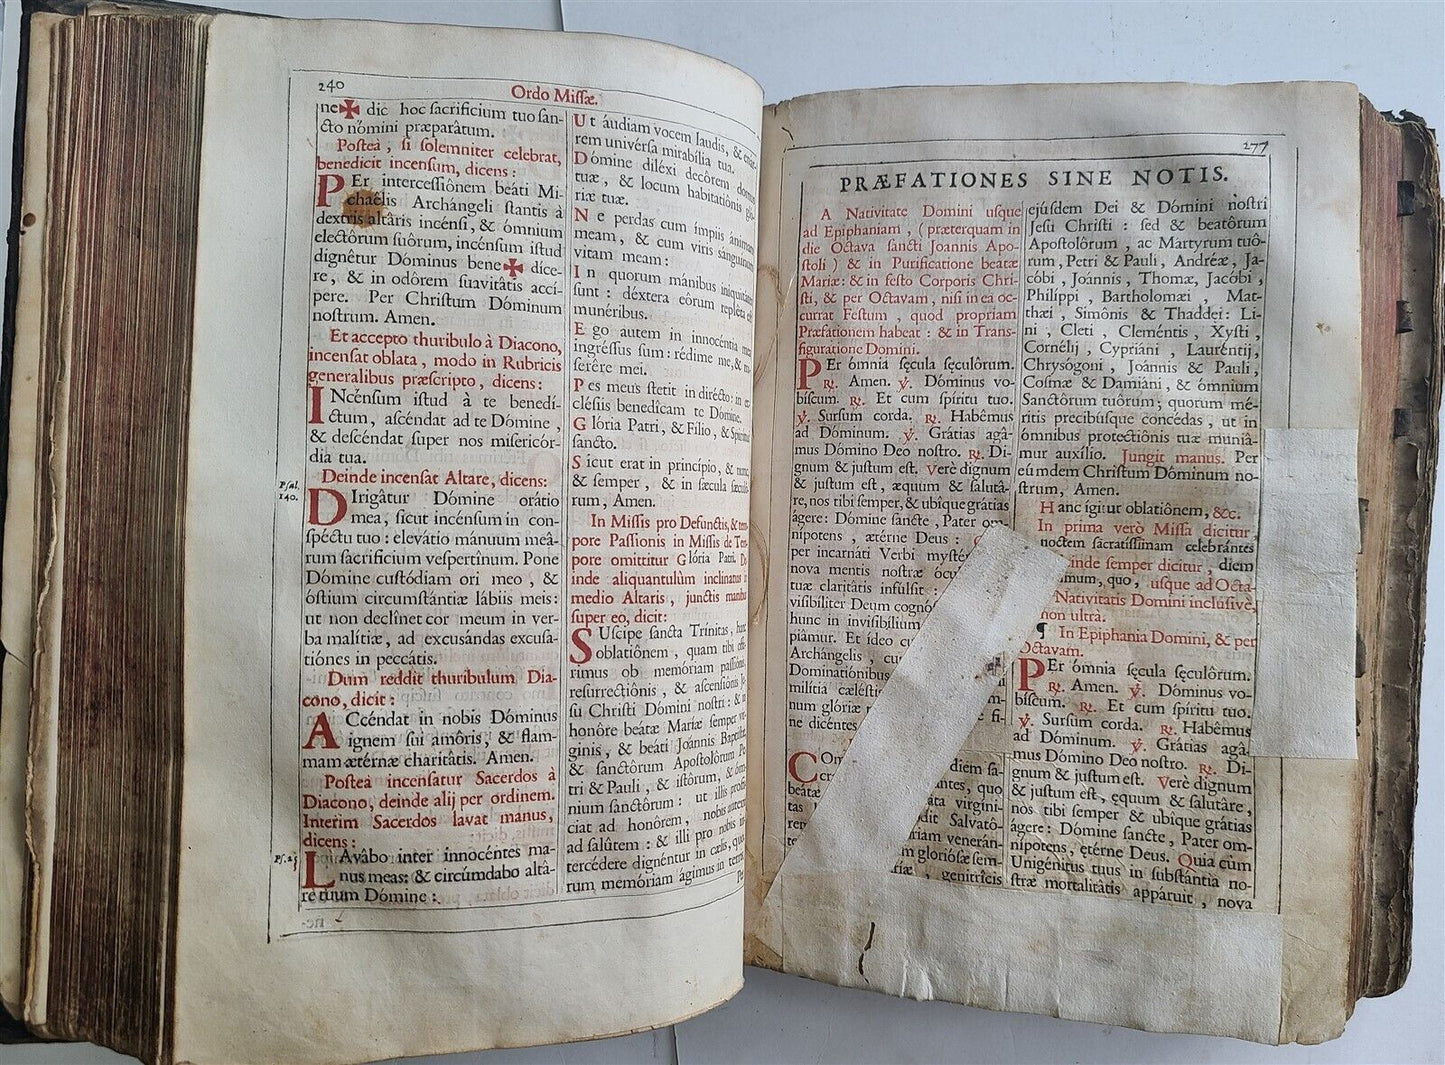 240
Ordo Missæ.
ne✠ dic hoc sacrificium tuo san-
cto nómini præparâtum.
Posteà, si solemniter celebrat,
benedicit incensum, dicens:
PEr intercessiônem beáti Mi-
chaêlis Archángeli stantis à
dextris altâris incénsi, & ómnium
electôrum suôrum, incénsum istud
dignêtur Dóminus bene✠dice-
re, & in odôrem suavitâtis accí-
pere. Per Christum Dóminum
nostrum. Amen.
Et accepto thuribulo à Diacono,
incensat oblata, modo in Rubricis
generalibus præscripto, dicens:
INcénsum istud à te benedí-
ctum, ascéndat ad te Dómine,
& descéndat super nos misericór-
dia tua.
Deinde incensat Altare, dicens:
Psal.
140.
DIrigâtur Dómine orátio
mea, sicut incénsum in con-
spéctu tuo: elevátio mánuum meâ-
rum sacrificium vespertînum. Pone
Dómine custódiam ori meo, &
óstium circumstántiæ lábiis meis:
ut non declînet cor meum in ver-
ba malítiæ, ad excusándas excusa-
tiónes in peccâtis.
Dum reddit thuribulum Dia-
cono, dicit:
ACcéndat in nobis Dóminus
ignem sui amôris, & flam-
mam ætérnæ charitâtis. Amen.
Postea incensatur Sacerdos à
Diacono, deinde alij per ordinem.
Interim Sacerdos lavat manus,
dicens:
Ps. 25
LAvâbo inter innocéntes ma-
nus meas: & circúmdabo altâ-
re tuum Dómine:
Ut áudiam vocem laudis, &
rem univérsa mirabília tua.
Dómine diléxi decôrem domus
tuæ, & locum habitatiônis
riæ tuæ.
Ne perdas cum ímpiis ánimam
meam, & cum viris sánguinum
vitam meam:
In quorum mánibus iniquitátes
sunt: déxtera eôrum repléta est
munéribus.
Ego autem in innocéntia mea
ingréssus sum: rédime me, & m-
serêre mei.
Pes meus stetit in dirécto: in e-
clésiis benedîcam te Dómine.
Glória Patri, & Fílio, & Spirítui
sancto.
Sicut erat in princípio, & nunc,
& semper, & in sæcula sæculo-
rum, Amen.
In Missis pro Defunctis, & tem-
pore Passionis in Missis de Tem-
pore omittitur Glória Patri. De
inde aliquantulùm inclinatus in
medio Altaris, junctis manibus
super eo, dicit:
SUscipe sancta Trínitas, hanc
oblatiônem, quam tibi offe-
rimus ob memóriam passiônis,
resurrectiônis, & ascensiônis Je-
su Christi Dómini nostri: & in
honôre beátæ Maríæ semper vir-
ginis, & beáti Joánnis Baptistæ,
& sanctôrum Apostolôrum Pe-
tri & Pauli, & istôrum, & óm-
nium sanctôrum: ut illis profíciat
ciat ad honórem, nobis autem
ad salûtem: & illi pro nobis in-
tercédere dignéntur in cælis, quo-
rum memóriam ágimus in terris.
Per
277
PRÆFATIONES SINE NOTIS.
A Nativitate Domini usque
ad Epiphaniam, (præterquam in
die Octava sancti Joannis Apo-
stoli) & in Purificatione beatæ
Mariæ: & in festo Corporis Chri-
sti, & per Octavam, nisi in ea oc-
currat Festum, quod propriam
Præfationem habeat: & in Trans-
figuratione Domini.
PEr ómnia sęcula sęculôrum.
℟. Amen. ℣. Dóminus vo-
bîscum. ℟. Et cum spíritu tuo.
℣. Sursum corda. ℟. Habêmus
ad Dóminum. ℣. Grátias agâ-
mus Dómino Deo nostro. ℟. Di-
gnum & justum est. Verè dignum
& justum est, æquum & salutâ-
re, nos tibi semper, & ubîque grátias
ágere: Dómine sancte, Pater om-
nípotens, ætérne Deus:
per incarnáti Verbi mysté
nova mentis nostræ ócu
tuæ claritâtis infúlsit:
visibíliter Deum cognó
hunc in invisibílium
piâmur. Et ídeo cu
Archángelis, cu
Dominatiónibus
milítia cæléstis
num glóriæ
ne dicéntes fi-
COm diem sa-
cr ntes, quo
beátæ ata virgíni-
tas dit Salvatô-
rep riam venerán-
te m gloriósæ sem-
riæ, genitrîcis
ejúsdem Dei & Dómini nostri
Jesu Christi: sed & beatôrum
Apostolôrum, ac Martyrum tuô-
rum, Petri & Pauli, Andréæ, Ja-
cóbi, Joánnis, Thomæ, Jacóbi,
Philíppi, Bartholomæi, Mat-
thæi, Simônis & Thaddei: Li-
ni, Cleti, Cleméntis, Xysti,
Cornélij, Cypriáni, Lauréntij,
Chrysógoni, Joánnis & Pauli,
Cosmæ & Damiáni, & ómnium
Sanctôrum tuôrum; quorum mé-
ritis precibúsque concédas, ut in
ómnibus protectiônis tuæ muniâ-
mur auxílio. Jungit manus. Per
eúmdem Christum Dóminum no-
strum, Amen.
Hanc ígitur oblatiônem, &c.
In prima verò Missa dicitur,
noctem sacratíssimam celebrántes
inde semper dicitur, diem
mum, quo, usque ad Octa-
Nativitatis Domini inclusivè,
non ultra.
¶ In Epiphania Domini, & per
Octavam.
PEr ómnia sęcula sęculôrum.
℟. Amen. ℣. Dóminus vo-
bîscum. ℟. Et cum spíritu tuo.
℣. Sursum corda. ℟. Habêmus
ad Dóminum. ℣. Grátias agâ-
mus Dómino Deo nostro. ℟. Di-
gnum & justum est. Verè dignum
& justum est, ęquum & salutâre,
nos tibi semper & ubîque grátias
ágere: Dómine sancte, Pater om-
nípotens, ętérne Deus. Quia cùm
Unigénitus tuus in substántia no-
stræ mortalitâtis appáruit, nova